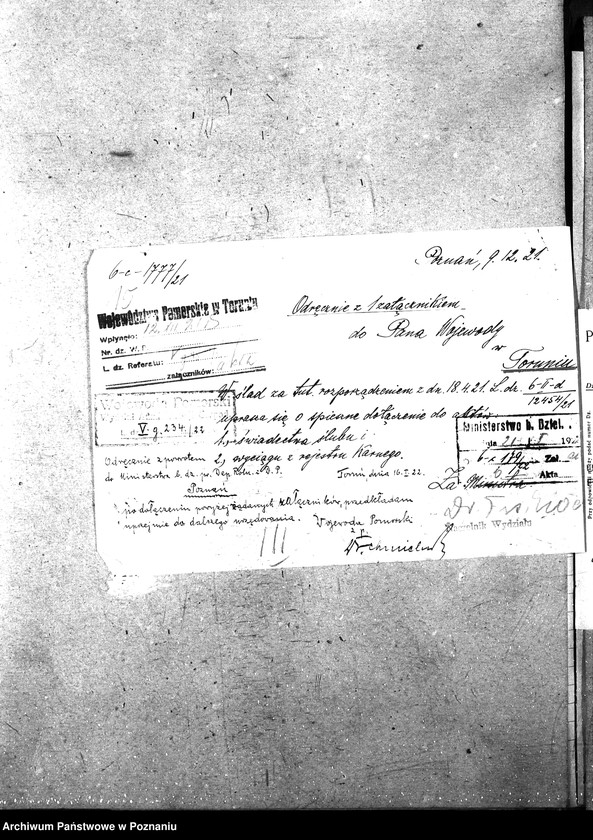 6-c-1777/21
Poznań, 9.12.21.
15
Województwo Pomorskie w Toruniu
Wpłynęło: 12. XII. 1921
Nr. dz. W.
L. dz. Referatu: V
załączników:
Odręcznie z 1 załącznikiem
do Pana Wojewody
w
Toruniu
W ślad za tut. rozporządzeniem z dn. 18.4.21. L. dz. 6-II-d
12454/21
uprasza się o spieszne dołączenie do aktów
1, świadectwa ślubu i
2, wyciągu z rejestru Karnego.
V g. 234/22
Ministerstwo b. Dziel.
dnia 21
6-c 179/22 Zał.
Akta
Za Ministra
Naczelnik Wydziału
Odręcznie z powrotem
do Ministerstwa b. dz. pr. Dep. Roln. i D. P.
Poznań
Toruń, dnia 16.I.22.
po dołączeniu powyżej żądanych załączników, przedkładam
uprzejmie do dalszego urzędowania.
Wojewoda Pomorski
z p.
III
Archiwum Państwowe w Poznaniu